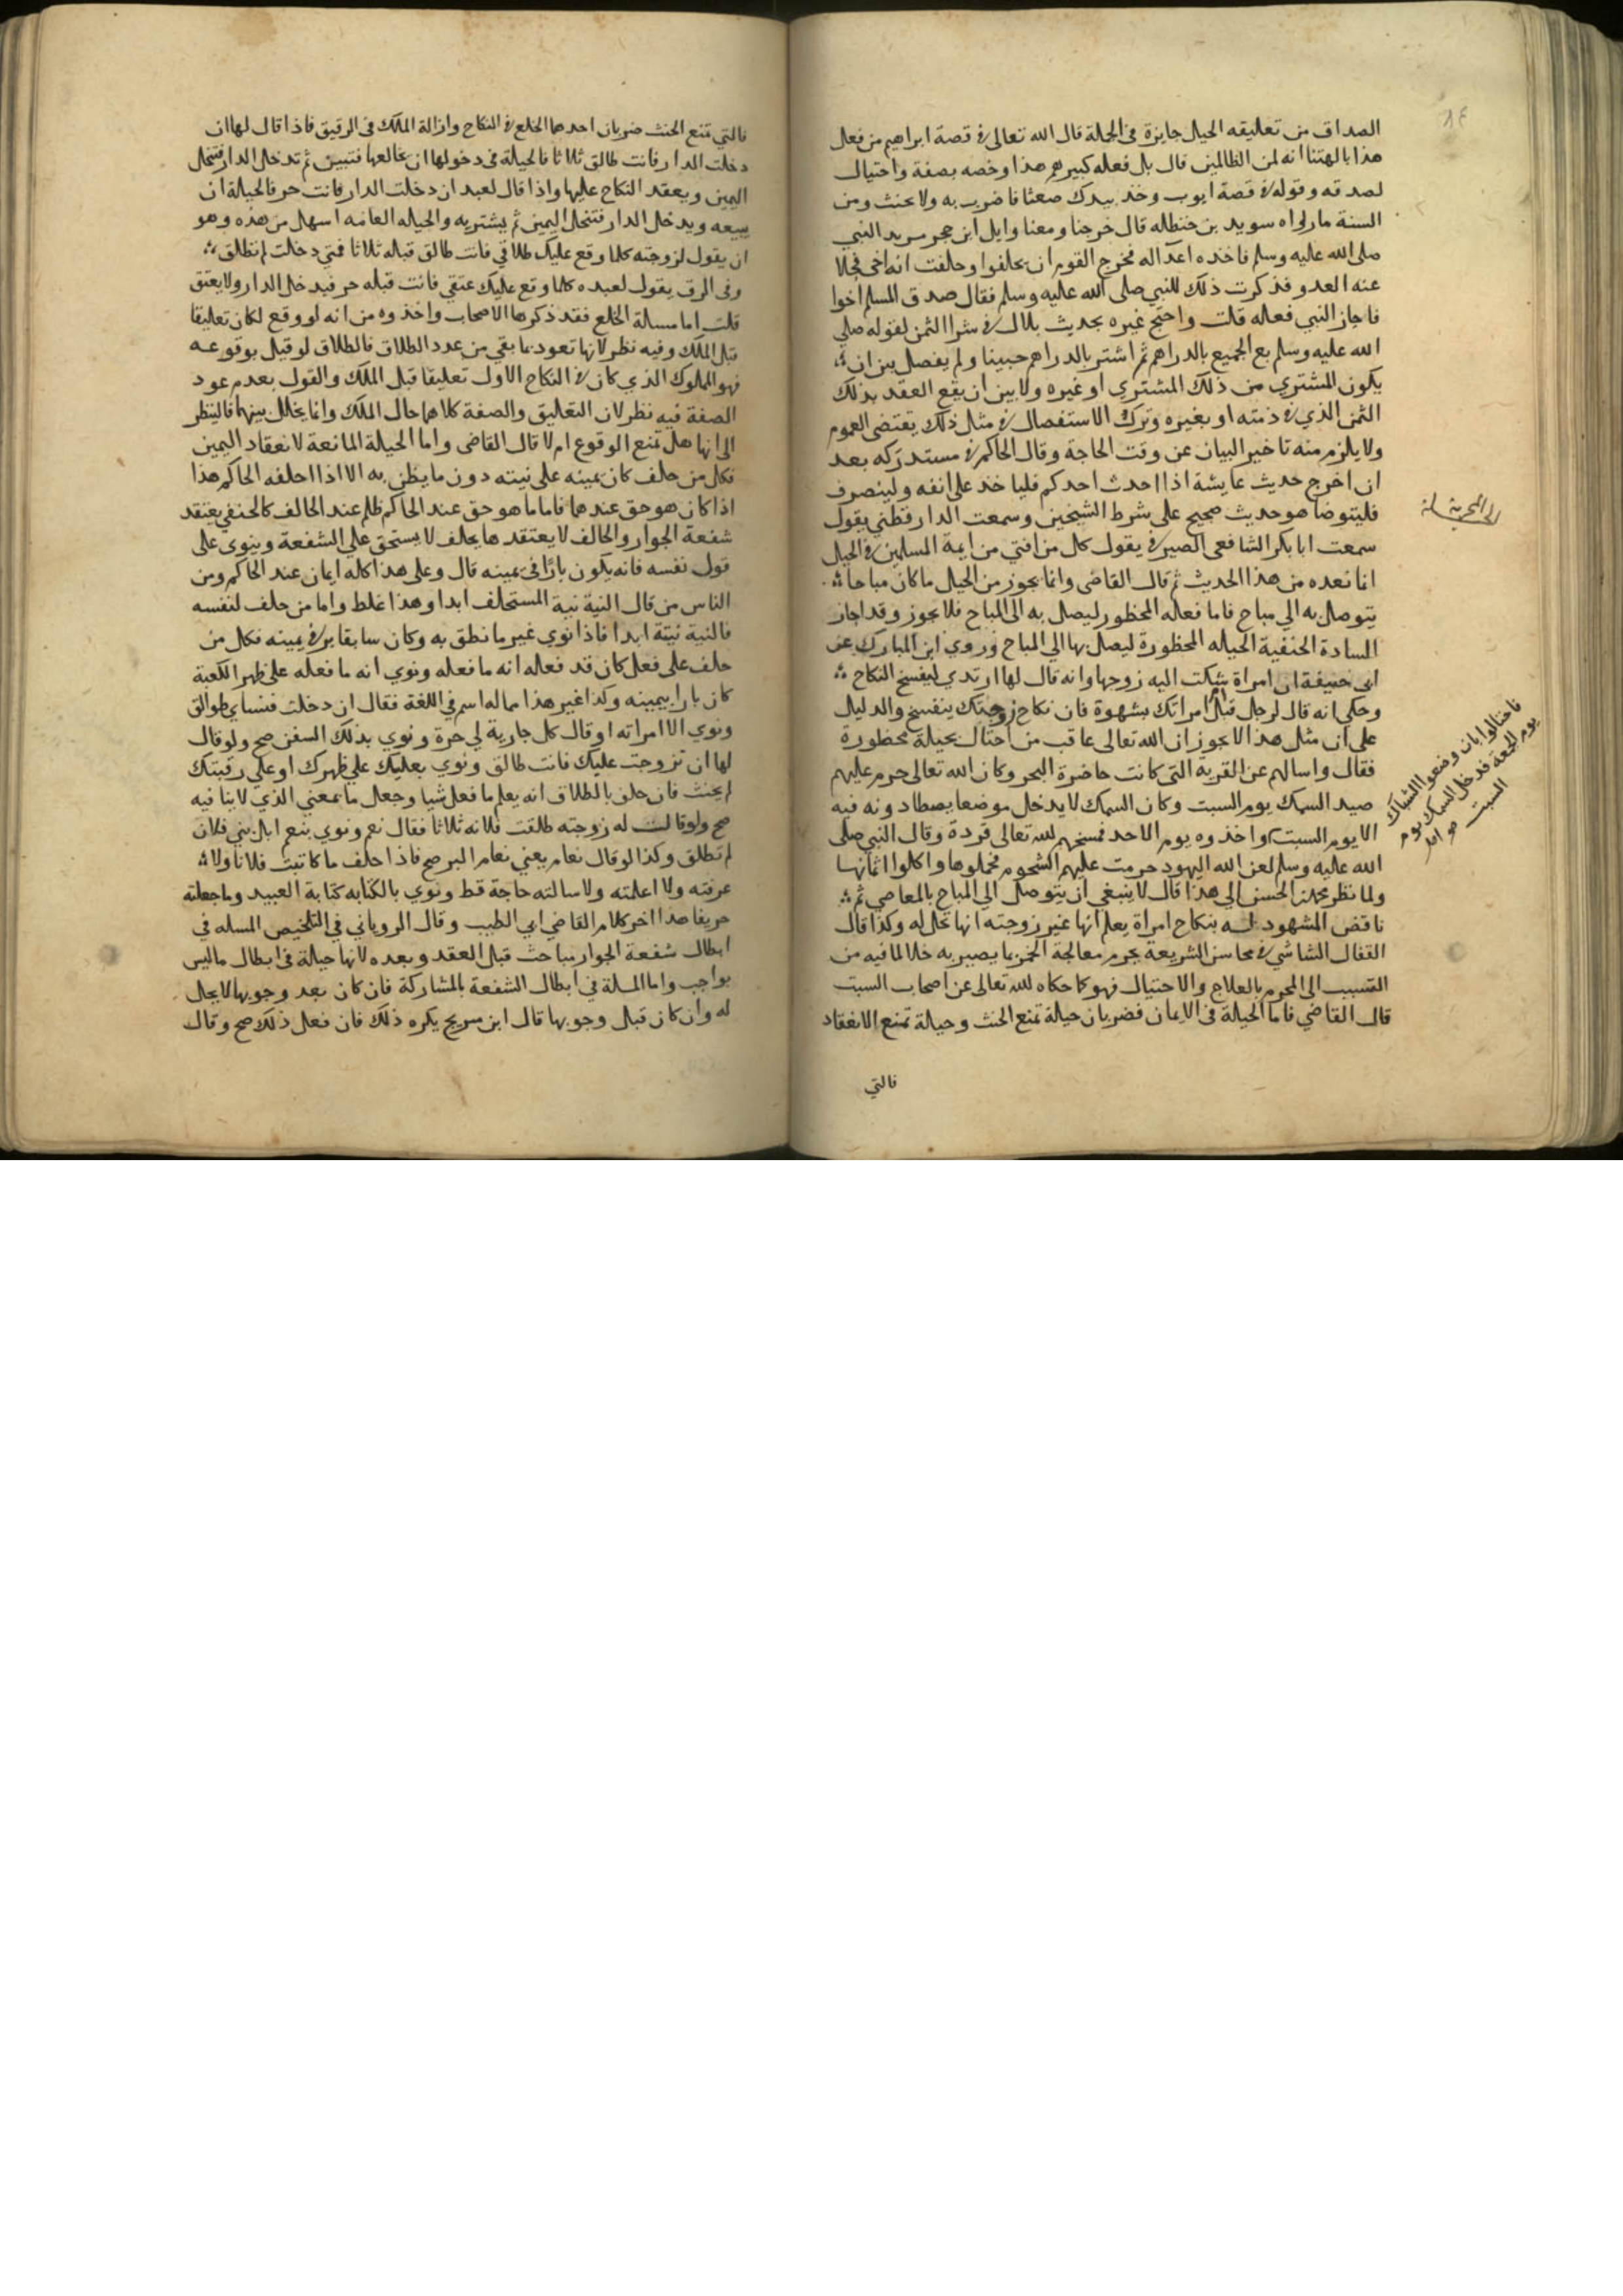 ١٤
الصداق من تعليقه الحيل جايزة في الجملة قال الله تعالى في قصة ابراهيم من فعل
هذا بالهتنا انه لمن الظالمين قال بل فعله كبيرهم هذا وخصه بصفة واحتيال
لصدقه وقوله في قصة ايوب وخذ بيدك ضغثا فاضرب به ولا تحنث ومن
السنة ما رواه سويد بن حنظله قال خرجنا ومعنا وايل ابن حجر يريد النبي
صلى الله عليه وسلم فاخذه اعداله فخرج القوم ان يحلفوا وحلفت انه اخي فخلا
عنه العدو فذكرت ذلك للنبي صلى الله عليه وسلم فقال صدق المسلم اخوا
فاجاز النبي فعله قلت واحتج غيره بحديث بلال في شرا الثمن لقوله صلي
الله عليه وسلم بع الجميع بالدراهم ثم اشتر بالدراهم جنيبا ولم يفصل بين ان
يكون المشتري من ذلك المشتري او غيره ولا بين ان يقع العقد بذلك
الثمن الذي في ذمته او بغيره وترك الاستفصال في مثل ذلك يقتضى العموم
ولا يلزم منه تاخير البيان عن وقت الحاجة وقال الحاكم في مستدركه بعد
ان اخرج حديث عايشة اذا احدث احدكم فلياخذ على انفه ولينصرف
فليتوضا هو حديث صحيح على شرط الشيخين وسمعت الدارقطني يقول
سمعت ابا بكر الشافعى الصيرفي يقول كل من افتي من ايمة المسلمين في الحيل
انما نعده من هذا الحديث ثم قال القاضى وانما يجوز من الحيل ما كان مباحا
يتوصل به الي مباح فاما فعله المحظور ليصل به الى المباح فلا يجوز وقد اجاز
السادة الحنفية الحيله المحظورة ليصل بها الي المباح وروي ابن المبارك عن
ابي حنيفة ان امراة شكت اليه زوجها وانه قال لها ارتدي لينفسخ النكاح
وحكي انه قال لرجل قبل امراتك بشهوة فان نكاح زوجتك ينفسخ والدليل
على ان مثل هذا لا يجوز ان الله تعالى عاقب من احتال بحيلة محظورة
فقال واسالهم عن القرية التى كانت حاضرة البحر وكان الله تعالى حرم عليهم
صيد السمك يوم السبت وكان السمك لا يدخل موضعا يصطادونه فيه
الا يوم السبت واخذوه يوم الاحد فمسخهم الله تعالى قردة وقال النبي صلى
الله عليه وسلم لعن الله اليهود حرمت عليهم الشحوم فجملوها واكلوا اثمانها
ولما نظر محمد بن الحسن الي هذا قال لا ينبغي ان يتوصل الي المباح بالمعاصي ثم
ناقض المشهود له بنكاح امراة يعلم انها غير زوجته انها تحل له وكذا قال
القفال الشاشي في محاسن الشريعة يحرم معالجة الخمر بما يصير به خلا لما فيه من
التسبب الى المحرم بالعلاج والاحتيال فهو كما حكاه الله تعالى عن اصحاب السبت
قال القاضي فاما الحيلة في الايمان فضربان حيلة تمنع الحنث وحيلة تمنع الانعقاد
فالتي
فاحتالوا بان وضعوا الشباك
يوم الجمعة فدخل السمك يوم
السبت
فالتي تمنع الحنث ضربان احدها الخلع في النكاح وازالة الملك في الرقيق فاذا قال لها ان
دخلت الدار فانت طالق ثلاثا فالحيلة في دخولها ان يخالعها فتبين ثم تدخل الدار فتنحل
اليمين ويعقد النكاح عليها واذا قال لعبد ان دخلت الدار فانت حر فالحيلة ان
يبيعه ويدخل الدار فتنحل اليمين ثم يشتريه والحيله العامه اسهل من هذه وهو
ان يقول لزوجته كلما وقع عليك طلاقي فانت طالق قبله ثلاثا فمتي دخلت لم تطلق
وفى الرق يقول لعبده كلما وقع عليك عتقي فانت قبله حر فيدخل الدار ولا يعتق
قلت اما مسالة الخلع فقد ذكرها الاصحاب واخذوه من انه لو وقع لكان تعليقا
قبل الملك وفيه نظر لانها تعود بما بقي من عدد الطلاق فالطلاق لو قيل بوقوعه
فهو المملوك الذي كان في النكاح الاول تعليقا قبل الملك والقول بعدم عود
الصفة فيه نظر لان التعليق والصفة كلاهما حال الملك وانما يخلل بينهما فالينظر
الى انها هل تمنع الوقوع ام لا قال القاضى واما الحيلة المانعة لانعقاد اليمين
فكل من حلف كان يمينه على نيته دون ما يظن به الا اذا احلفه الحاكم هذا
اذا كان هو حق عندهما فاما ما هو حق عند الحاكم ظلم عند الحالف كالحنفي يعتقد
شفعة الجوار والحالف لا يعتقدها يحلف لا يستحق علي الشفعة وينوى على
قول نفسه فانه يكون بارًا في يمينه قال وعلى هذا كله ايمان عند الحاكم ومن
الناس من قال النية نية المستحلف ابدا وهذا غلط واما من حلف لنفسه
فالنية نيتة ابدا فاذا نوي غير ما نطق به وكان سابقا بر في يمينه فكل من
حلف على فعل كان قد فعله انه ما فعله ونوي انه ما فعله على ظهر الكعبة
كان بارا بيمينه وكذا غير هذا مما له اسم في اللغة فقال ان دخلت فنساي طوالق
ونوي الا امراته او قال كل جارية لي حرة ونوي بذلك السفن صح ولو قال
لها ان تزوجت عليك فانت طالق ونوي بعليك علي ظهرك او علي رقبتك
لم يحنث فان حلف بالطلاق انه يعلم ما فعل شيا وجعل ما بمعني الذي لا ينافيه
صح ولو قالت له زوجته طلقت فلانه ثلاثا فقال نعم ونوي بنعم ابل بني فلان
لم تطلق وكذا لو قال نعام يعني نعام البر صح فاذا حلف ما كاتبت فلانا ولا
عرفته ولا اعلمته ولا سالته حاجة قط ونوي بالكتابه كتابة العبيد وما جعلته
عريفا هذا اخر كلام القاضي ابي الطيب وقال الروياني في التلخيص المسله في
ابطال شفعة الجوار مباحث قبل العقد وبعده لانها حيلة في ابطال ما ليس
بواجب واما المسلة في ابطال الشفعة بالمشاركة فان كان بعد وجوبها لا يحل
له وان كان قبل وجوبها قال ابن سريج يكره ذلك فان فعل ذلك صح وقال